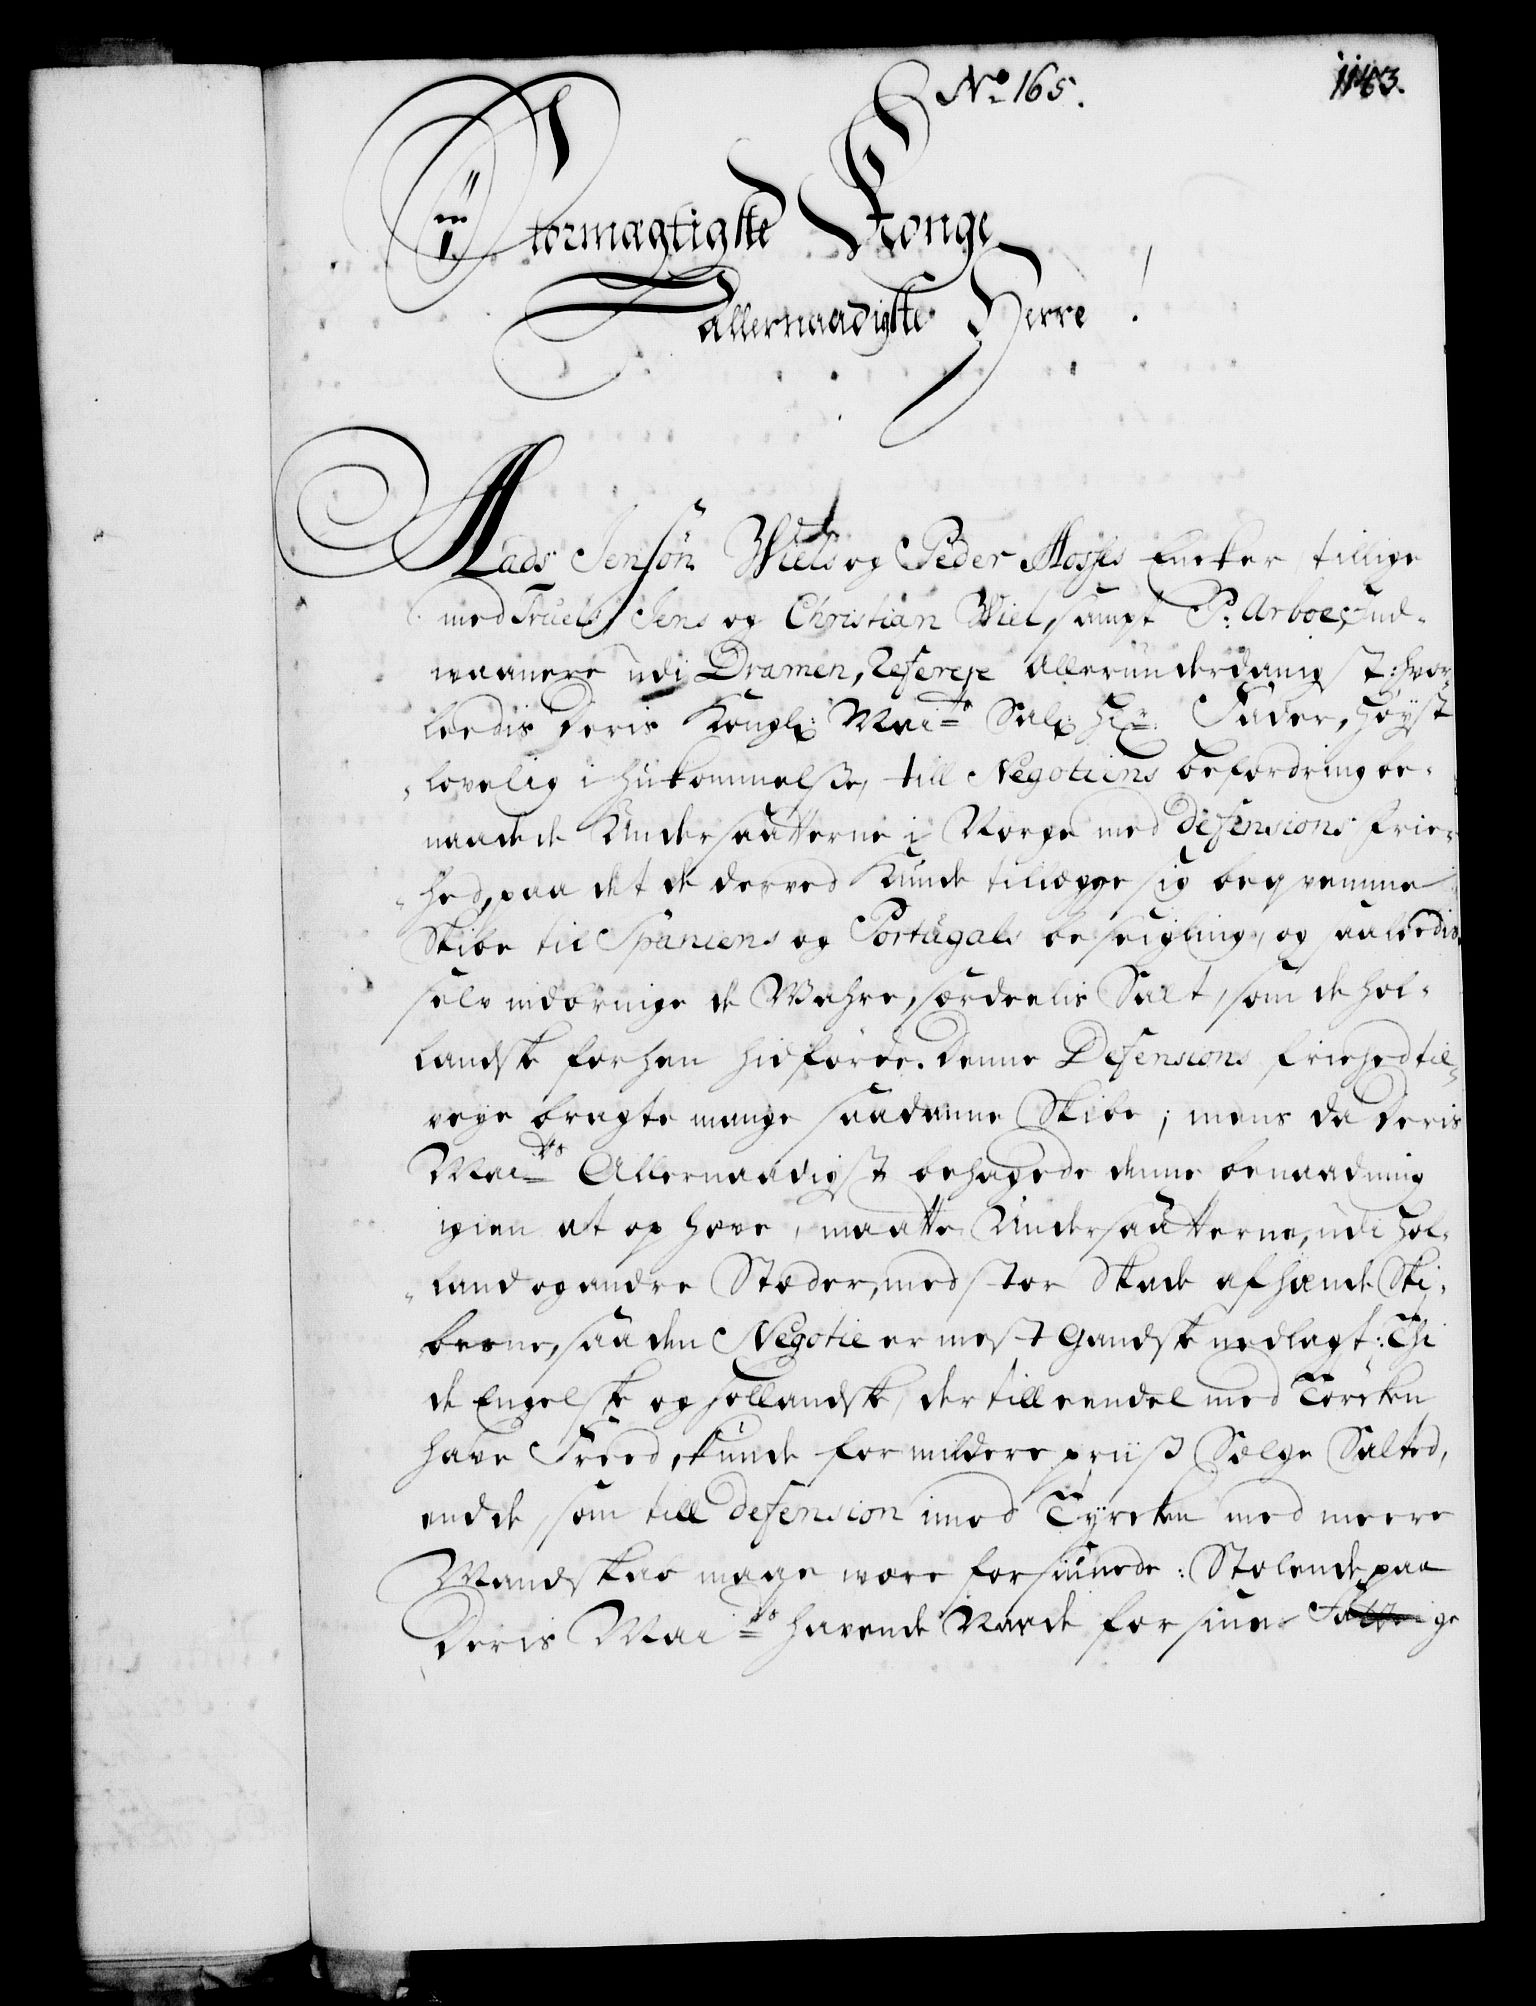 No 165.
1143.
Stormægtigste Konge
Allernaadigste Herre!
Mads Jensön Wiels og Peder Mosses Encker tillige
med Truels, Jens og Christian Wiel, sampt P: Arboe, ind-
waanere udi Dramen, Referere Allerunderdanigst: hvor-
leedis Deris Kongl: Mai.ts Sal: Hr. Fader, Høyst
lovelig ihukommelse, till Negotiens befordring be-
naadede Undersaatterne i Norge med Defensions frie-
hed, paa det de derved kunde tillegge sig beqvemme
Skibe til Spaniens og Portugals beseigling, og saaleedis
selv indbringe de Wahre, særdeelis Salt, som de Hol-
landske forhen hidførde. Denne Defensions friehed til-
veye bragte mange saadanne Skibe; mens da Deris
Mai.ts Allernaadigst behagede denne benaadning
igien at ophæve, maatte Undersaatterne, udi Hol-
land og andre Stæder, med stor Skade afhænde Ski-
berne, saa den Negotie er mest gandske nedlagt: Thi
de Engelske og Hollandske, der till eendel med Törcken
have Freed, kunde for mildere priiss Sælge Salted,
end de, som till defension imod Tyrcken med meere
Mandskab mage være forsiunede: Stolende paa
Deris Mai.ts havende Naade for sine